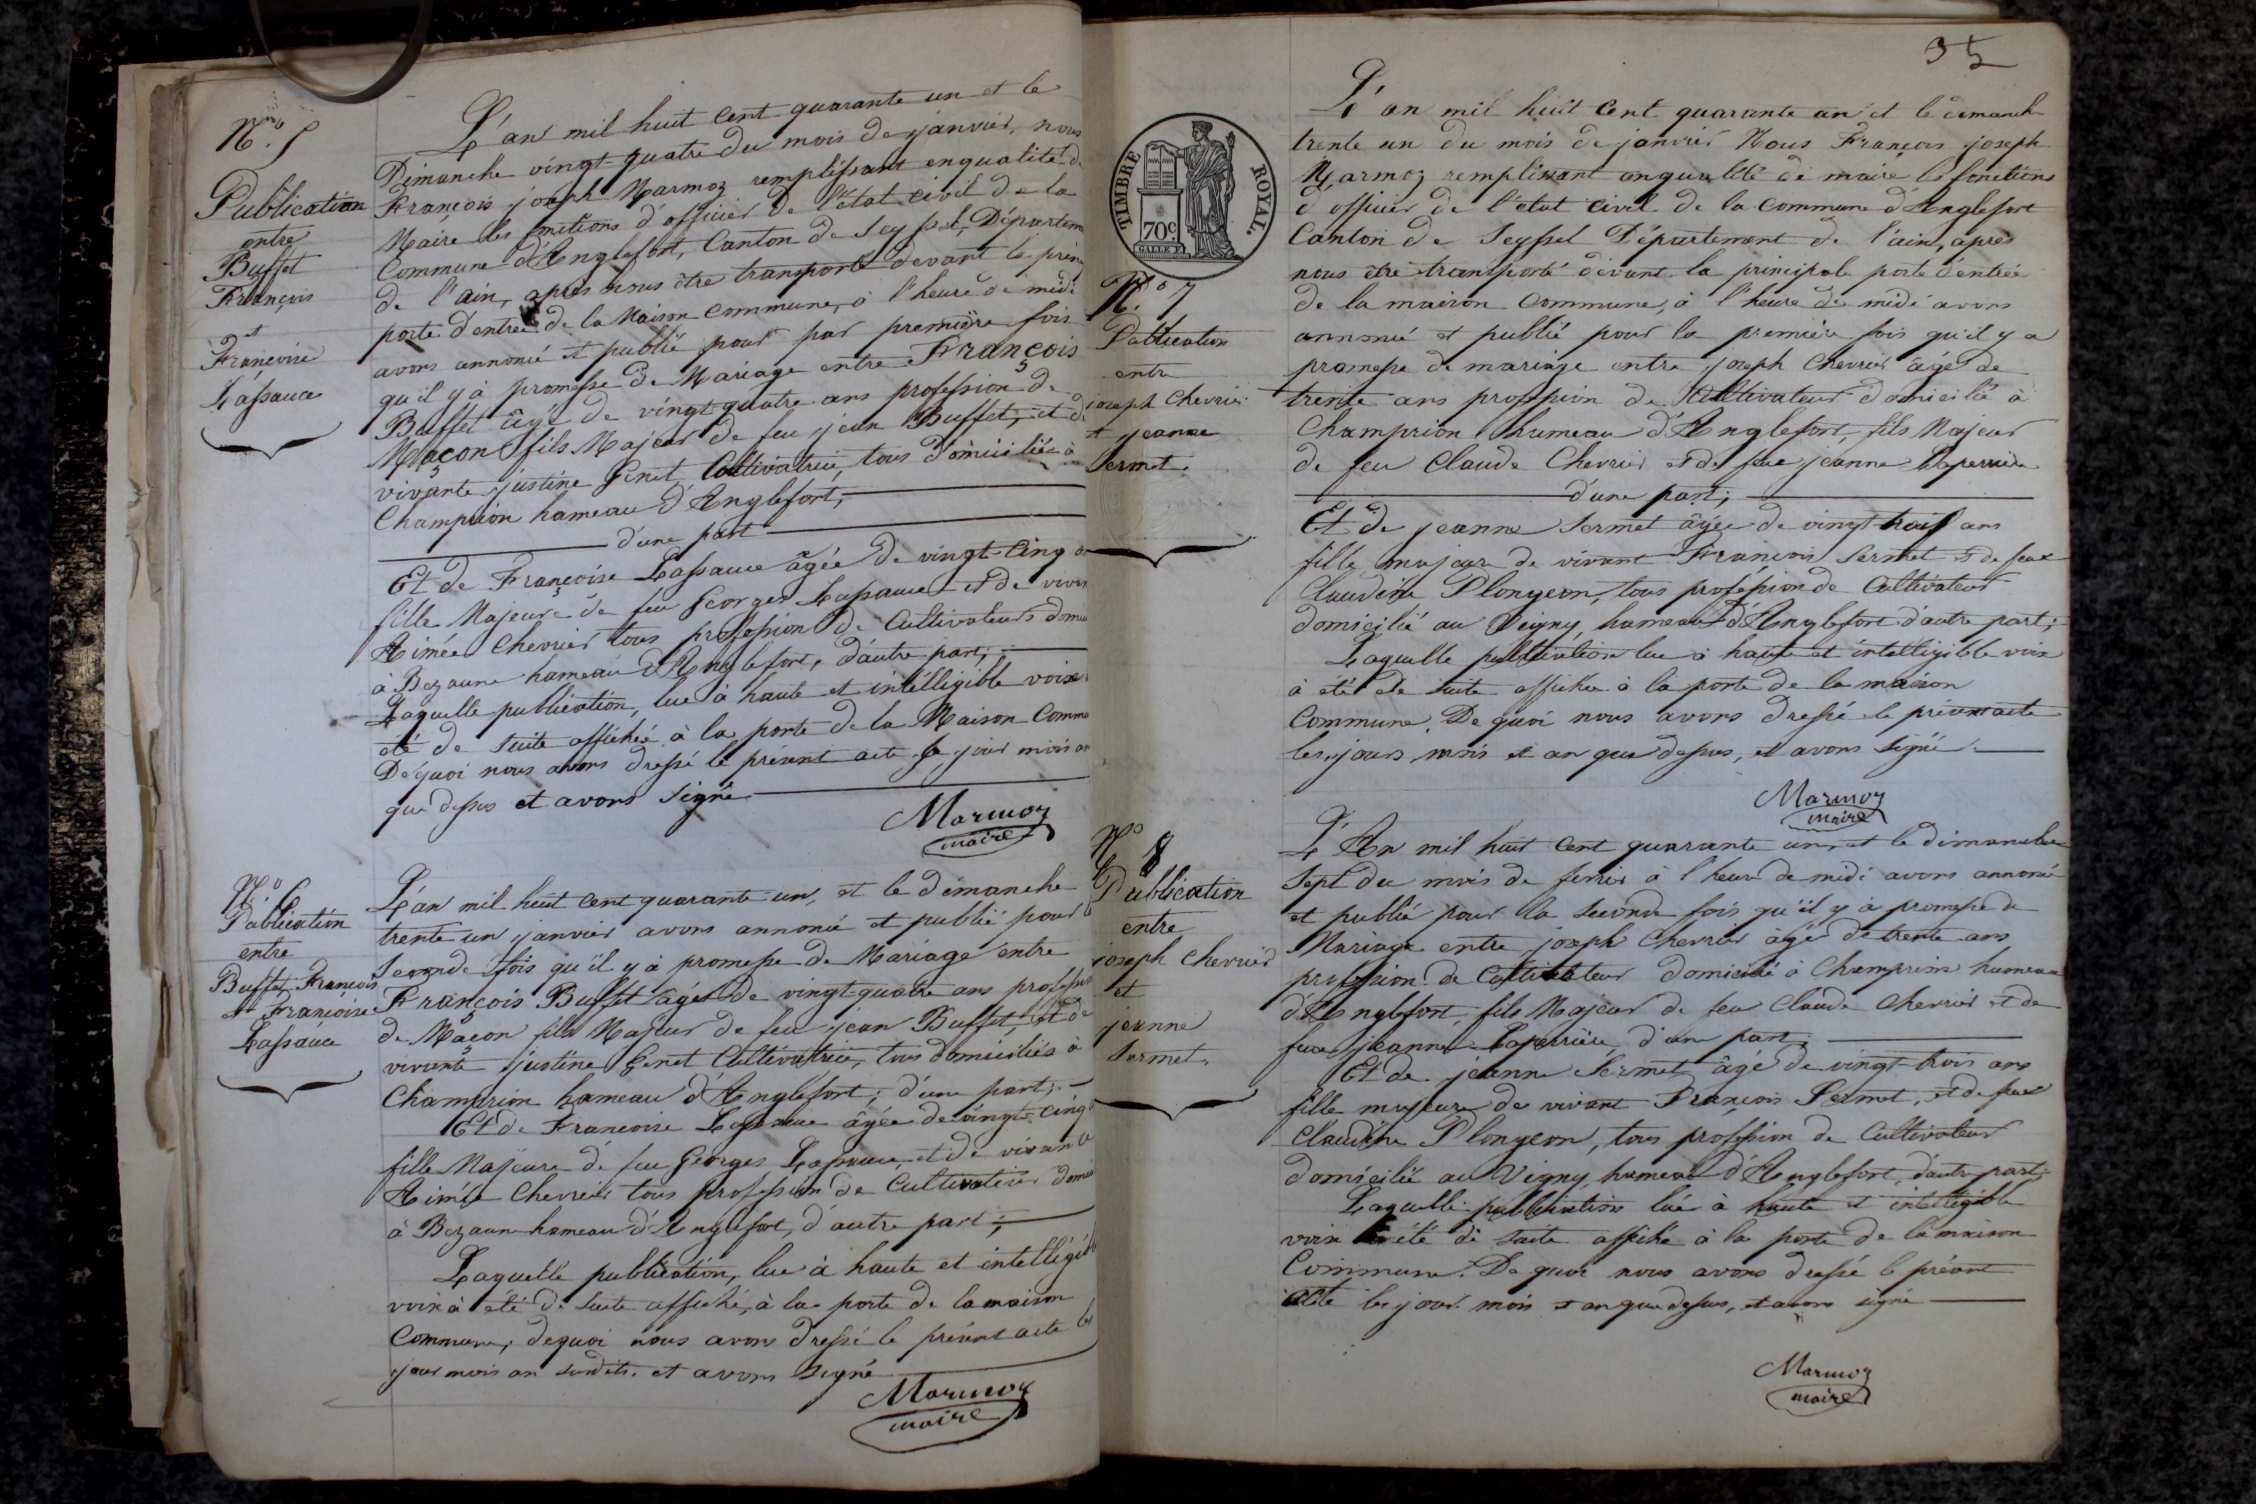 No. 5
Publication
entre
Buffet
François
et
Françoise
Lassauce
L'an mil huit cent quarante un et le
Dimanche vingt-quatre du mois de janvier, nous
François joseph Marmoz remplissant en qualité d
Maire les fonctions d'officier de l'état civil de la
Commune d'Anglefort, Canton de Seyssel, Départem
de l'ain, après nous être transporté devant la prin
porte d'entrée de la Maison commune, à l'heure de midi
avons annoncé et publié pour par première fois
qu'il y à promesse de Mariage entre François
Buffet âgé de vingt-quatre ans profession de
Maçon fils Majeur de feu jean Buffet, et d
vivante justine Genet Cultivatrice, tous domiciliés à
Champrion hameau d'Anglefort,
d'une part
Et de Françoise Lassauce âgée de vingt-cinq a
fille Majeure de feu Georges Lassauce et de vivan
Aimée Chevrier tous profession de Cultivateurs domic
à Bezaune hameau d'Anglefort, d'autre part,
Laquelle publication, lue à haute et intélligible voix
été de suite affichée à la porte de la Maison Commu
De quoi nous avons dressé le présent acte le jour mois an
que dessus et avons signé
Marmoz
maire
No. 6
Publication
entre
Buffet François
et Françoise
Lassauce
L'an mil huit cent quarante-un, et le dimanche
trente un janvier avons annoncé et publié pour
Seconde fois qu'il y à promesse de Mariage entre
François Buffet âgé de vingt-quatre ans profession
de Maçon fils Majeur de feu jean Buffet, et de
vivante justine Genet Cultivatrice, tous domiciliés à
Champrion hameau d'Anglefort, d'une part,
Et de Françoise Lassauce âgée de vingt-cinq
fille Majeure de feu Georges Lassauce, et de vivante
Aimée Chevrier tous profession de Cultivateur domic
à Bezaun hameau d'Anglefort, d'autre part;
Laquelle publication, lue à haute et intelligib
voix à été de suite affichée, à la porte de la maison
Commune, de quoi nous avons dressé le présent acte les
jour mois an susdits. et avons signé
Marmoz
maire
35
TIMBRE ROYAL.
70c
No 7
Publication
entre
joseph Chevrier
et jeanne
Sermet
L'an mil huit cent quarante un et le dimanch
trente un du mois de janvier Nous François joseph
Marmoz remplissant en qualité de maire les fonctions
d'officier de l'etat civil de la commune d'Anglefort
Canton de Seyssel Département de l'ain, après
nous être transporté devant la principale porte d'entrée
de la maison Commune, à l'heure de midi avons
annoncé et publié pour la première fois qu'il y a
promesse de mariage entre joseph Chevrier âgé de
trente ans profession de Cultivateur domicilié à
Champrion hameau d'Anglefort, fils Majeur
de feu Claude Chevrier et de feue jeanne Laperrière
d'une part;
Et de jeanne Sermet âgée de vingt trois ans
fille majeure de vivant François Sermet et de feue
Claudine Plongeon, tous profession de Cultivateur
domicilié au Vigny, hameau d'Anglefort d'autre part;
Laquelle publication lue à haute et intelligible voix
à été de suite affichée à la porte de la maison
Commune. De quoi nous avons dressé le présent acte
les jours mois et an que dessus, et avons signé
Marmoz
maire
No 8
Publication
entre
joseph Chevrier
et
jeanne
Sermet.
L'An mil huit cent quarante un, et le dimanche
Sept du mois de fevrier à l'heure de midi avons annoncé
et publié pour la Seconde fois qu'il y à promesse de
Mariage entre joseph Chevrier âgé de trente ans
profession de Cultivateur domicilié à Champrion hameau
d'Anglefort, fils Majeur de feu Claude Chevrier et de
feue jeanne Laperrière, d'une part,
Et de jeanne Sermet, âgé de vingt trois ans
fille majeure de vivant François Sermet, et de feue
Claudine Plongeon, tous profession de Cultivateur
domicilié au Vigny, hameau d'Anglefort, d'autre part;
Laquelle publication lue à haute et intelligible
voix à été de suite affiché à la porte de la maison
Commune. De quoi nous avons dressé le présent
acte les jour mois et an que dessus, et avons signé
Marmoz
maire